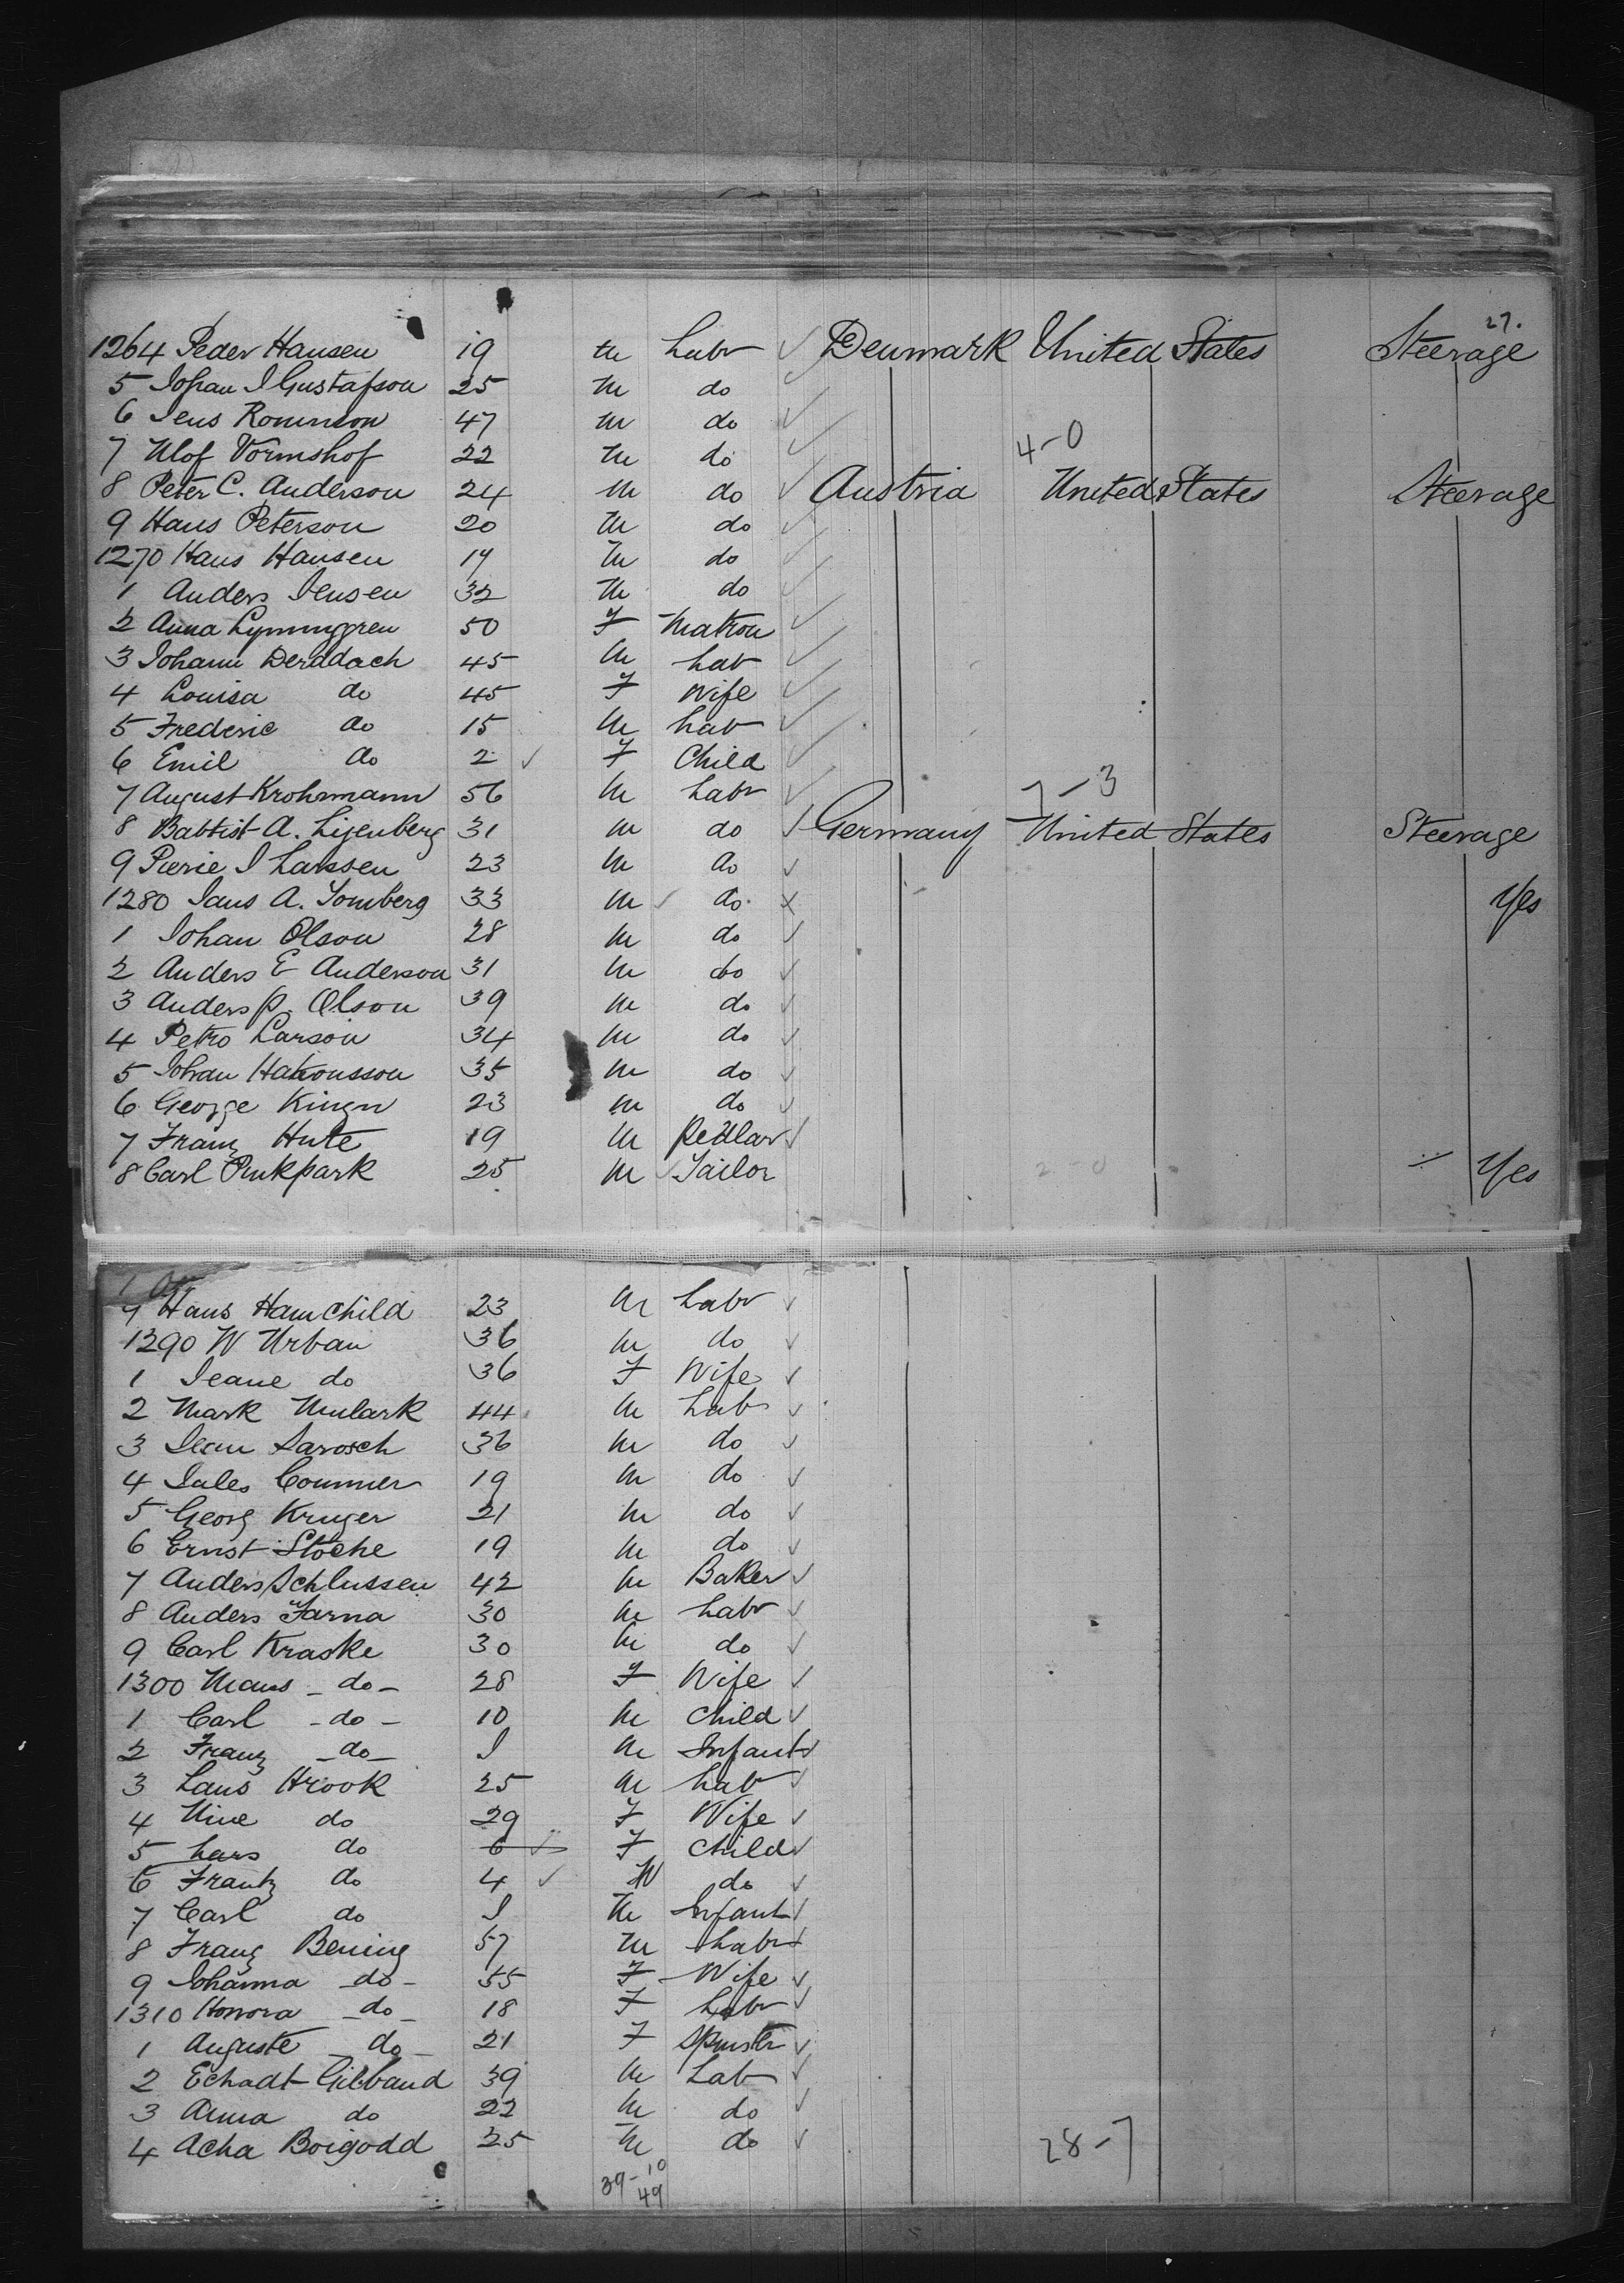 27.
1264 Peder Hansen 19 m Labr Denmark United States Steerage
5 Johan I Gustafson 25 m do
6 Jens Romnson 47 m do
7 Ulof Vormshof 22 m do 4-0
8 Peter C. Anderson 24 m do Austria United States Steerage
9 Hans Peterson 20 m do
1270 Hans Hansen 19 m do
1 Anders Jensen 32 m do
2 Anna Lynnggren 50 F Matron
3 Johann Derddach 45 m Lab
4 Louisa do 45 F Wife
5 Frederic do 15 m Lab
6 Emil do 2 F Child
7 August Krohrmann 56 m Labr 7-3
8 Babtist A. Lijenberg 31 m do Germany United States Steerage
9 Pierie I Larssen 23 m do
1280 Jans A. Tomberg 33 m do Yes
1 Johan Olson 28 m do
2 Anders E Anderson 31 m do
3 Anders P. Olson 39 m do
4 Petro Larson 34 m do
5 Johan Hakonsson 35 m do
6 George Kingn 23 m do
7 Franz Hute 19 m Pedlar
8 Carl Pinkpark 25 m Tailor 2-0 Yes
9 Hans Hamchild 23 m Labr
1290 W Urban 36 m do
1 Jeane do 36 F Wife
2 Mark Mulark 44 m Lab
3 Jean Sarosch 36 m do
4 Jales Coummer 19 m do
5 Georg Kruger 21 m do
6 Ernst Stoche 19 m do
7 Anders Schlussen 42 m Baker
8 Anders Jarna 30 m Labr
9 Carl Kraske 30 m do
1300 Maus - do - 28 F Wife
1 Carl - do - 10 m Child
2 Franz - do - I m Infant
3 Laus Hrook 25 m Lab
4 Nine do 29 F Wife
5 Lars do 6 F Child
6 Frantz do 4 M do
7 Carl do I m Infant
8 Franz Bening 57 m Labr
9 Johanna - do - 55 F Wife
1310 Honora - do - 18 F Labr
1 Auguste - do - 21 F Spinster
2 Echadt Gilbaud 39 m Lab
3 Anna do 22 m do
4 Acha Boigodd 25 m do 28-7
39-10
49